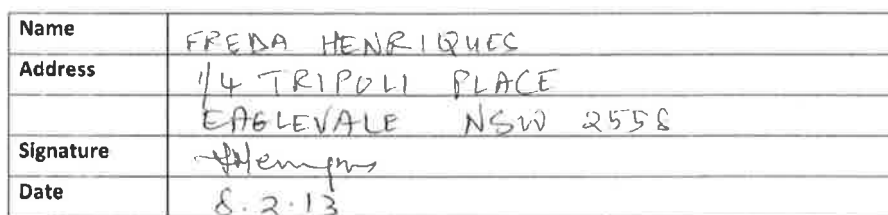 Name FREDA HENRIQUES
Address 1/4 TRIPOLI PLACE
EAGLEVALE NSW 2558
Signature
Date 8.2.13